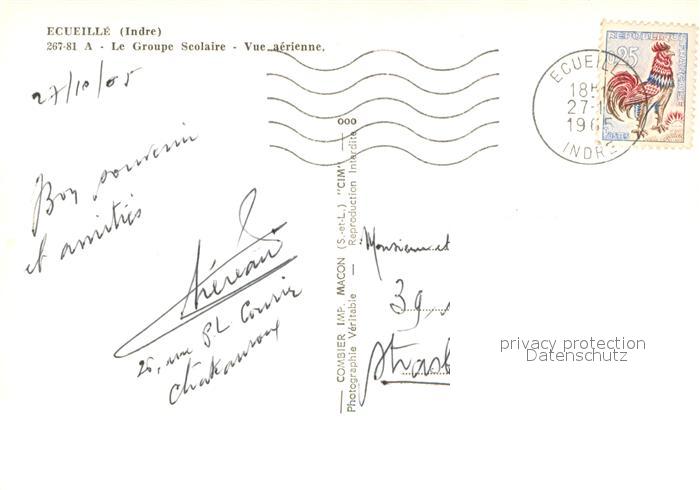 ECUEILLÉ (Indre)
267-81 A - Le Groupe Scolaire - Vue aérienne.
27/10/65
Bon souvenir
et amitiés
26, rue P.L Courier
Chateauroux
— COMBIER IMP. MACON (S.-et-L.) "CIM" — ooo
Photographie Véritable — Reproduction Interdite
ECUEILL
18H
27-1
1965
INDRE
REPUBLIQUE
FRANÇAISE
0,25
POSTES
Monsieur et
39,
Strasb
privacy protection
Datenschutz